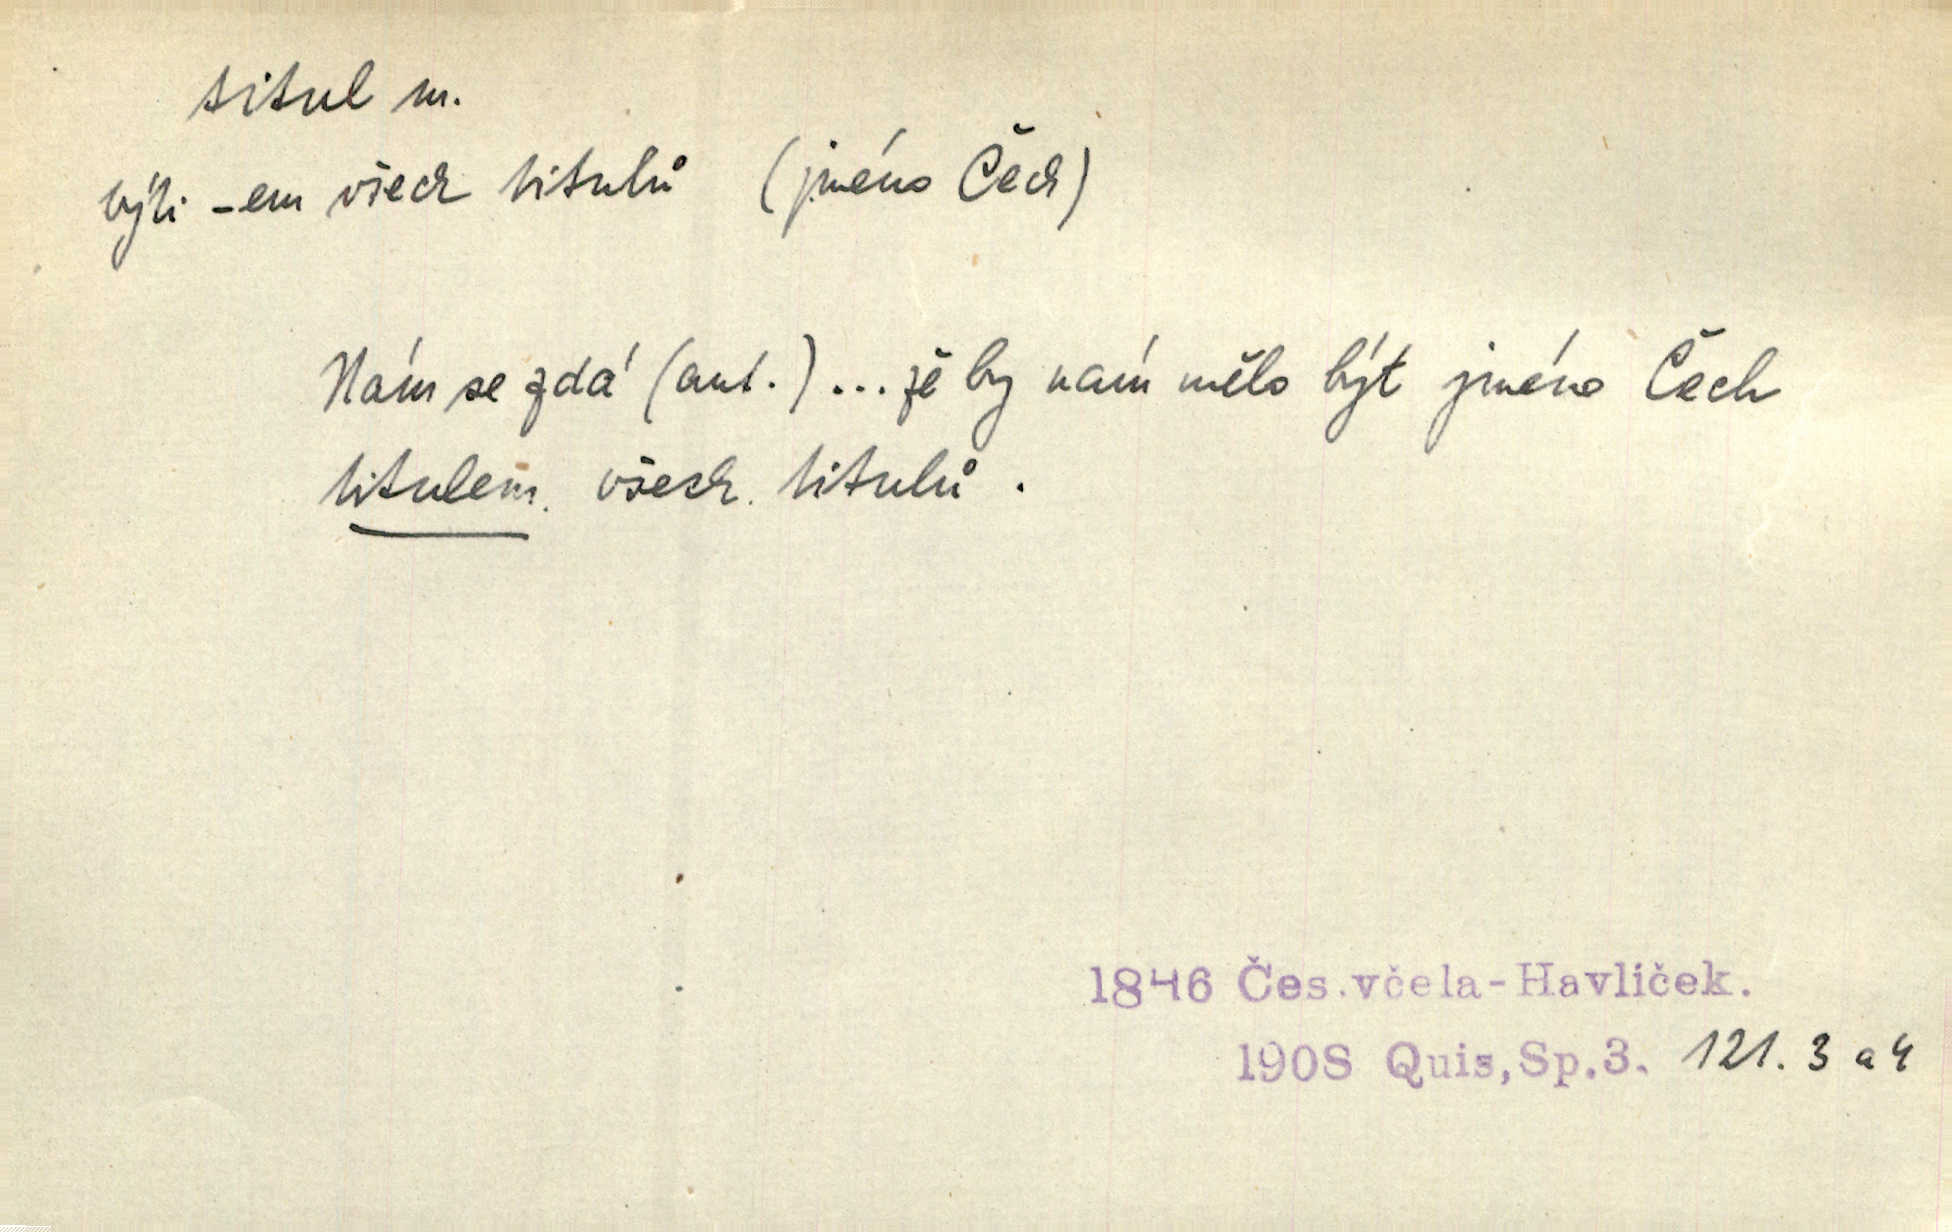 titul m.
býti -em všech titulů (jméno Čech)
Nám se zdá (aut.)... že by nám mělo být jméno Čech
titulem všech titulů.
1846 Čes.včela-Havlíček.
1908 Quis,Sp.3. 121. 3 a 4